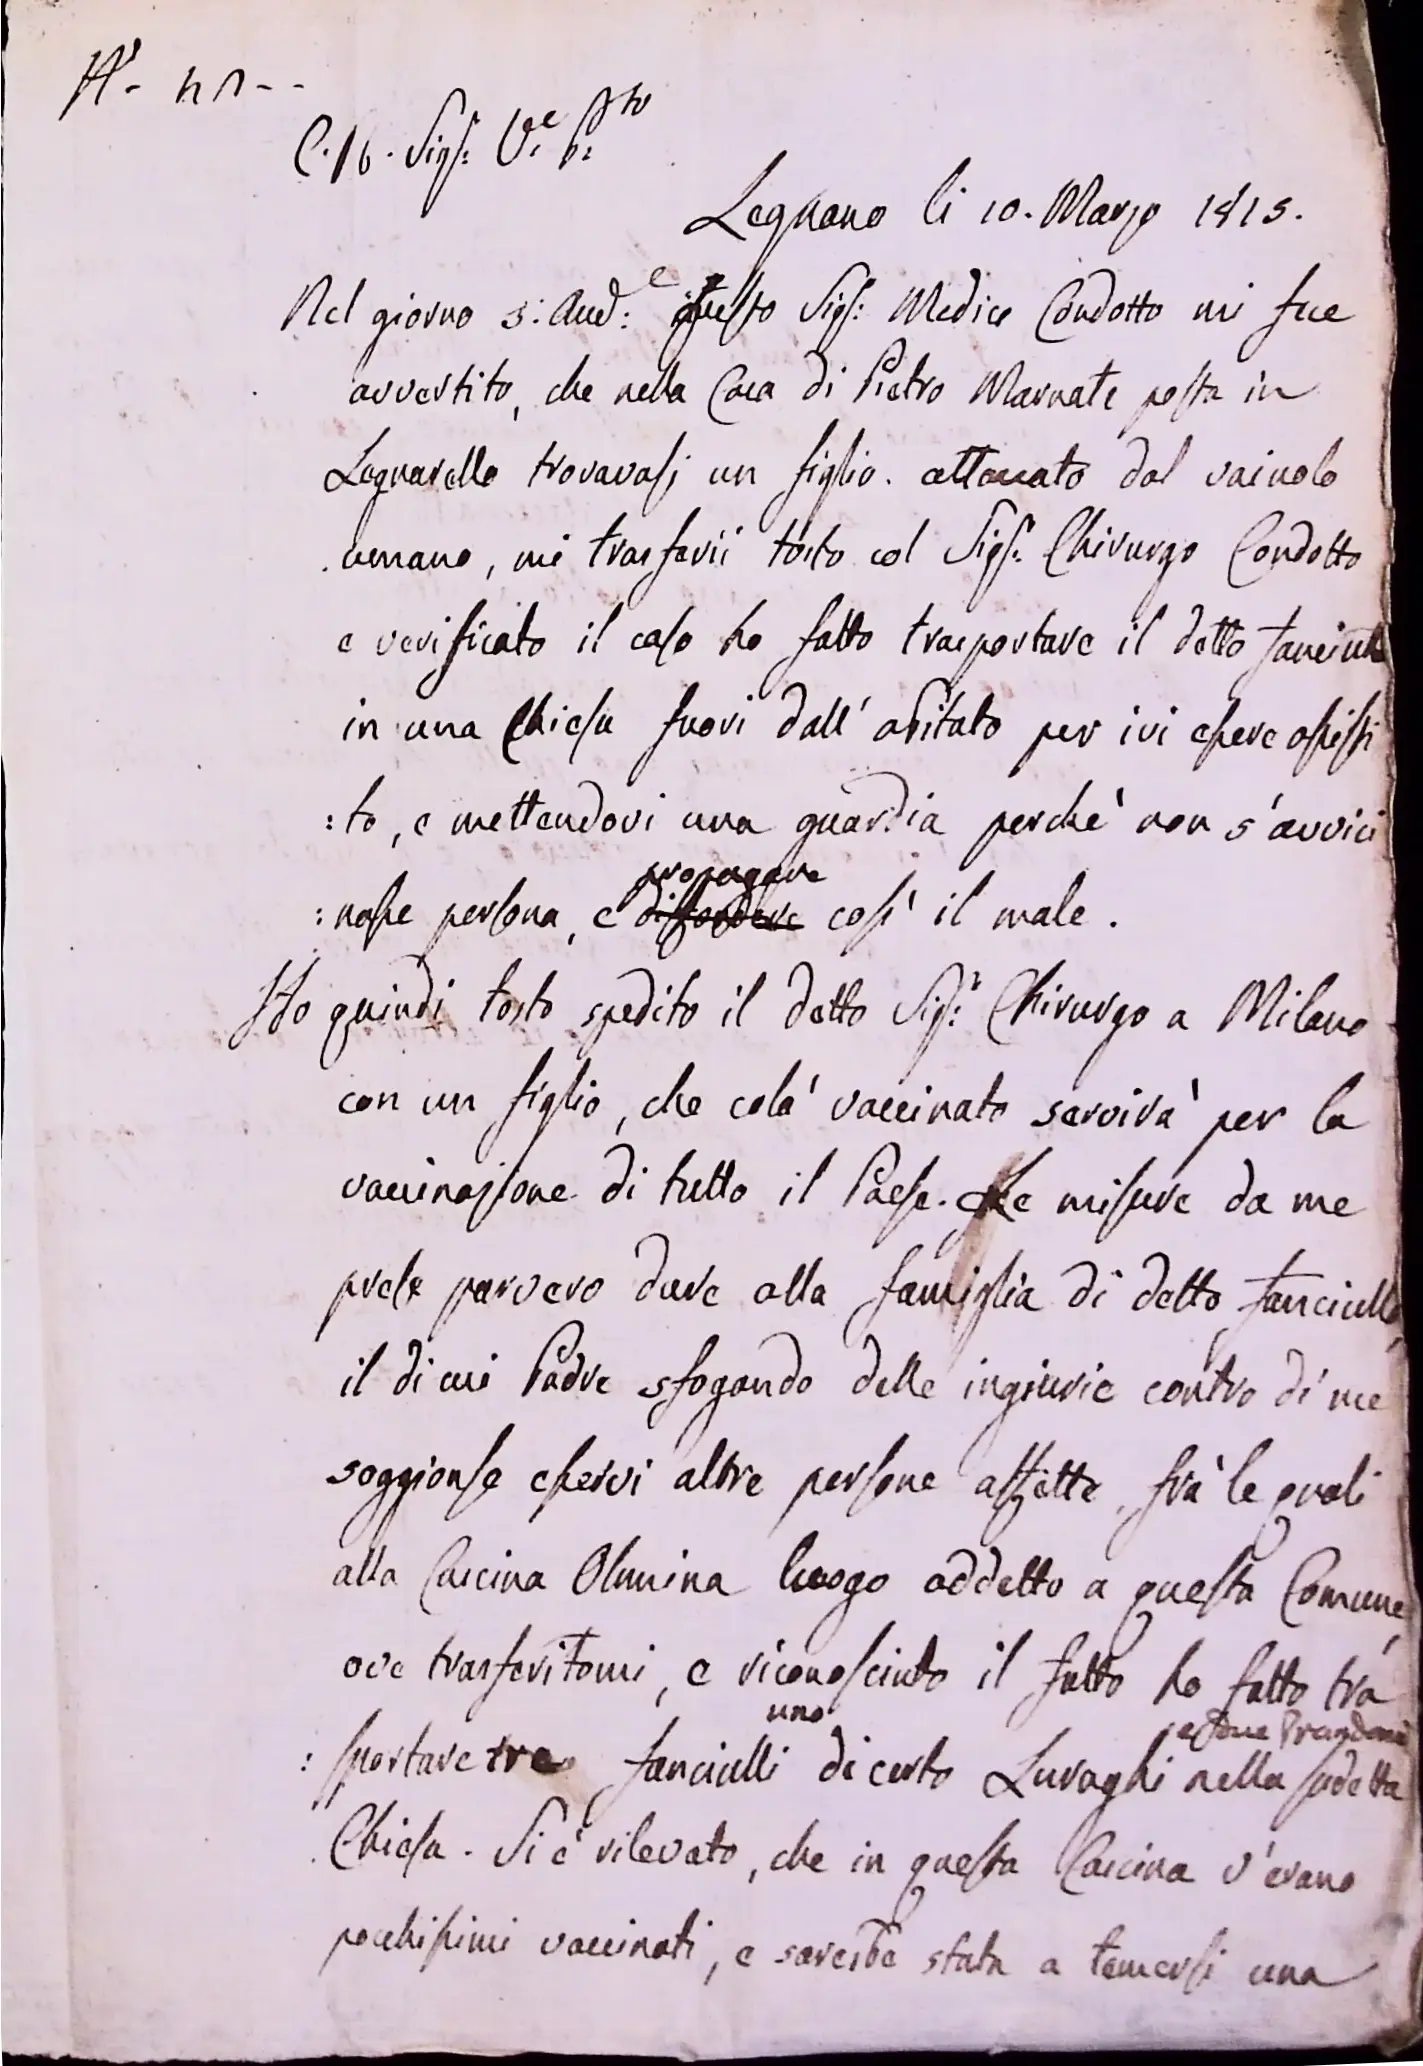 Legnano li 10. Marzo 1813.
Nel giorno 3: And:e questo Sigr: Medico Condotto mi fece
avvertito, che nella Casa di Pietro Marnate posta in
Legnarello trovavasi un figlio attaccato dal vaiuolo
umano, mi trasferii tosto col Sigr: Chirurgo Condotto
e verificato il caso ho fatto trasportare il detto fanciullo
in una Chiesa fuori dall'abitato per ivi essere assisti
:to, e mettendovi una guardia perchè non s'avvici
propagare
:nasse persona, e diffondere così il male.
Ho quindi tosto spedito il detto Sigr: Chirurgo a Milano
con un figlio, che colà vaccinato servirà per la
vaccinazione di tutto il Paese. Le misure da me
prese parvero dure alla famiglia di detto fanciullo,
il di cui Padre sfogando delle ingiurie contro di me
soggionse esservi altre persone affette, frà le quali
alla Cascina Olmina luogo addetto a questa Comune,
ove trasferitomi, e riconosciuto il fatto ho fatto tra
uno e due Prandoni
:sportare tre fanciulli di certo Luraghi nella sudetta
Chiesa. Si è rilevato, che in questa Cascina v'erano
pochissimi vaccinati, e sarebbe stata a temersi una